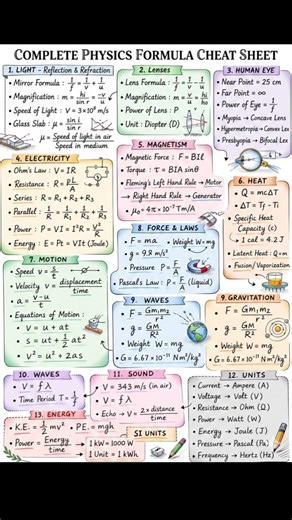 COMPLETE PHYSICS FORMULA CHEAT SHEET
1. LIGHT - Reflection & Refraction
• Mirror Formula : 1/f = 1/v + 1/u
• Magnification : m = hi/sin r = -v/u
• Speed of Light : V = 3×10⁸ m/s
• Glass Slab : μ = sin i/sin r
μ = Speed of light in air/Speed in medium
2. Lenses
• Lens Formula : 1/f = 1/v - 1/u
• Magnification : m = hi/ho
• Power of Lens : P
• Unit : Diopter (D)
3. HUMAN EYE
• Near Point = 25 cm
• Far Point = ∞
• Power of Eye = 1/f
• Myopia → Concave Lens
• Hypermetropia → Convex Lex
• Presbyopia → Bifocal Lex
4. ELECTRICITY
• Ohm's Law : V = IR
• Resistance : R = ρL/A
• Series : R = R₁ + R₂ + R₃
• Parallel : 1/R = 1/R₁ + 1/R₂ + 1/R₃
• Power : P = VI = I²R = V²/R
• Energy : E = Pt = VIt (Joule)
5. MAGNETISM
• Magnetic Force : F = BIl
• Torque : τ = BIA sinθ
• Fleming's Left Hand Rule → Motor
→ Right Hand Rule → Generator
• μ₀ = 4π × 10⁻⁷ T m/A
6. HEAT
• Q = mcΔT
• ΔT = Tf - Ti
• Specific Heat
Capacity (c)
• 1 cal = 4.2 J
• Latent Heat : Q = m
• Fusion/Vaporization
7. MOTION
• Speed v = s/t
• Velocity v = displacement/time
• a = v - u/t
• Equations of Motion :
v = u + at
s = ut + 1/2 at²
v² = u² + 2as
8. FORCE & LAWS
• F = ma
• Weight W = mg
• g = 9.8 m/s²
• Pressure P = F/A
• Pascal's Law : P = F/A (liquid)
9. WAVES
• F = Gm₁m₂/r²
• g = GM/R²
• Weight W = mg
• G = 6.67 × 10⁻¹¹ N m²/kg²
9. GRAVITATION
• F = Gm₁m₂
• g = GM/R²
• Weight W = mg
• G = 6.67 × 10⁻¹¹ N m²/kg²
10. WAVES
• V = f λ
• Time Period T = 1/f
11. SOUND
• V = 343 m/s (in air)
• V = f λ
• Echo → V = 2 × distance/time
12. UNITS
• Current → Ampere (A)
• Voltage → Volt (V)
• Resistance → Ohm (Ω)
• Power → Watt (W)
• Energy → Joule (J)
• Pressure → Pascal (Pa)
• Frequency → Hertz (Hz)
13. ENERGY
• K.E. = 1/2 mv² • P.E. = mgh
• Power = Energy/time
SI UNITS
1 kW = 1000 W
1 Unit = 1 kWh